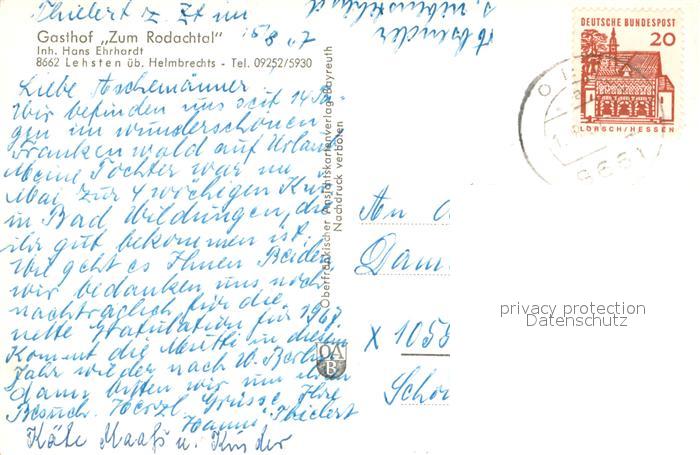 Absender
Thielert z. Zt im
5/8 67
Gasthof „Zum Rodachtal"
Inh. Hans Ehrhardt
8662 Lehsten üb. Helmbrechts - Tel. 09252/5930
Liebe Aschemänner
Wir befinden uns seit 14 Ta-
gen im wunderschönen
Frankenwald auf Urlaub
Meine Tochter war im
Mai zur 4 wöchigen Kur
in Bad Wildungen, die
ihr gut bekommen ist.
Wie geht es Ihnen Beiden
wir bedanken uns noch
nachträglich für die
nette Gratulation für 1967
Kommt die Mutti in diesem
Jahr wieder nach W. Berlin
dann bitten wir um ihren
Besuch. Herzl. Grüsse Ihre
Hanni Thielert
Käte Maaß u. Kinder
Oberfränkischer Ansichtskartenverlag Bayreuth
Nachdruck verboten
OA
B
DEUTSCHE BUNDESPOST
20
LORSCH/HESSEN
8651
An
Dam
X 1055
Schö
privacy protection
Datenschutz